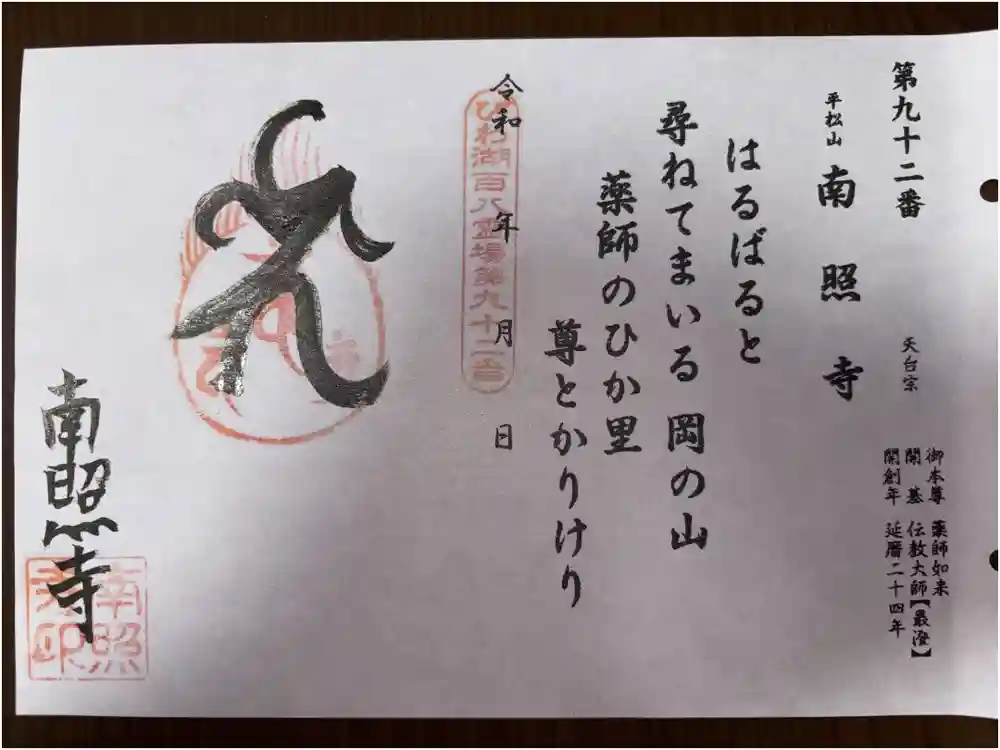 第九十二番
平松山 南照寺 天台宗
御本尊 薬師如来
開基 伝教大師【最澄】
開創年 延暦二十四年
はるばると
尋ねてまいる 岡の山
薬師のひか里
尊とかりけり
令和 年 月 日
びわ湖百八霊場第九十二番
南照寺
南照